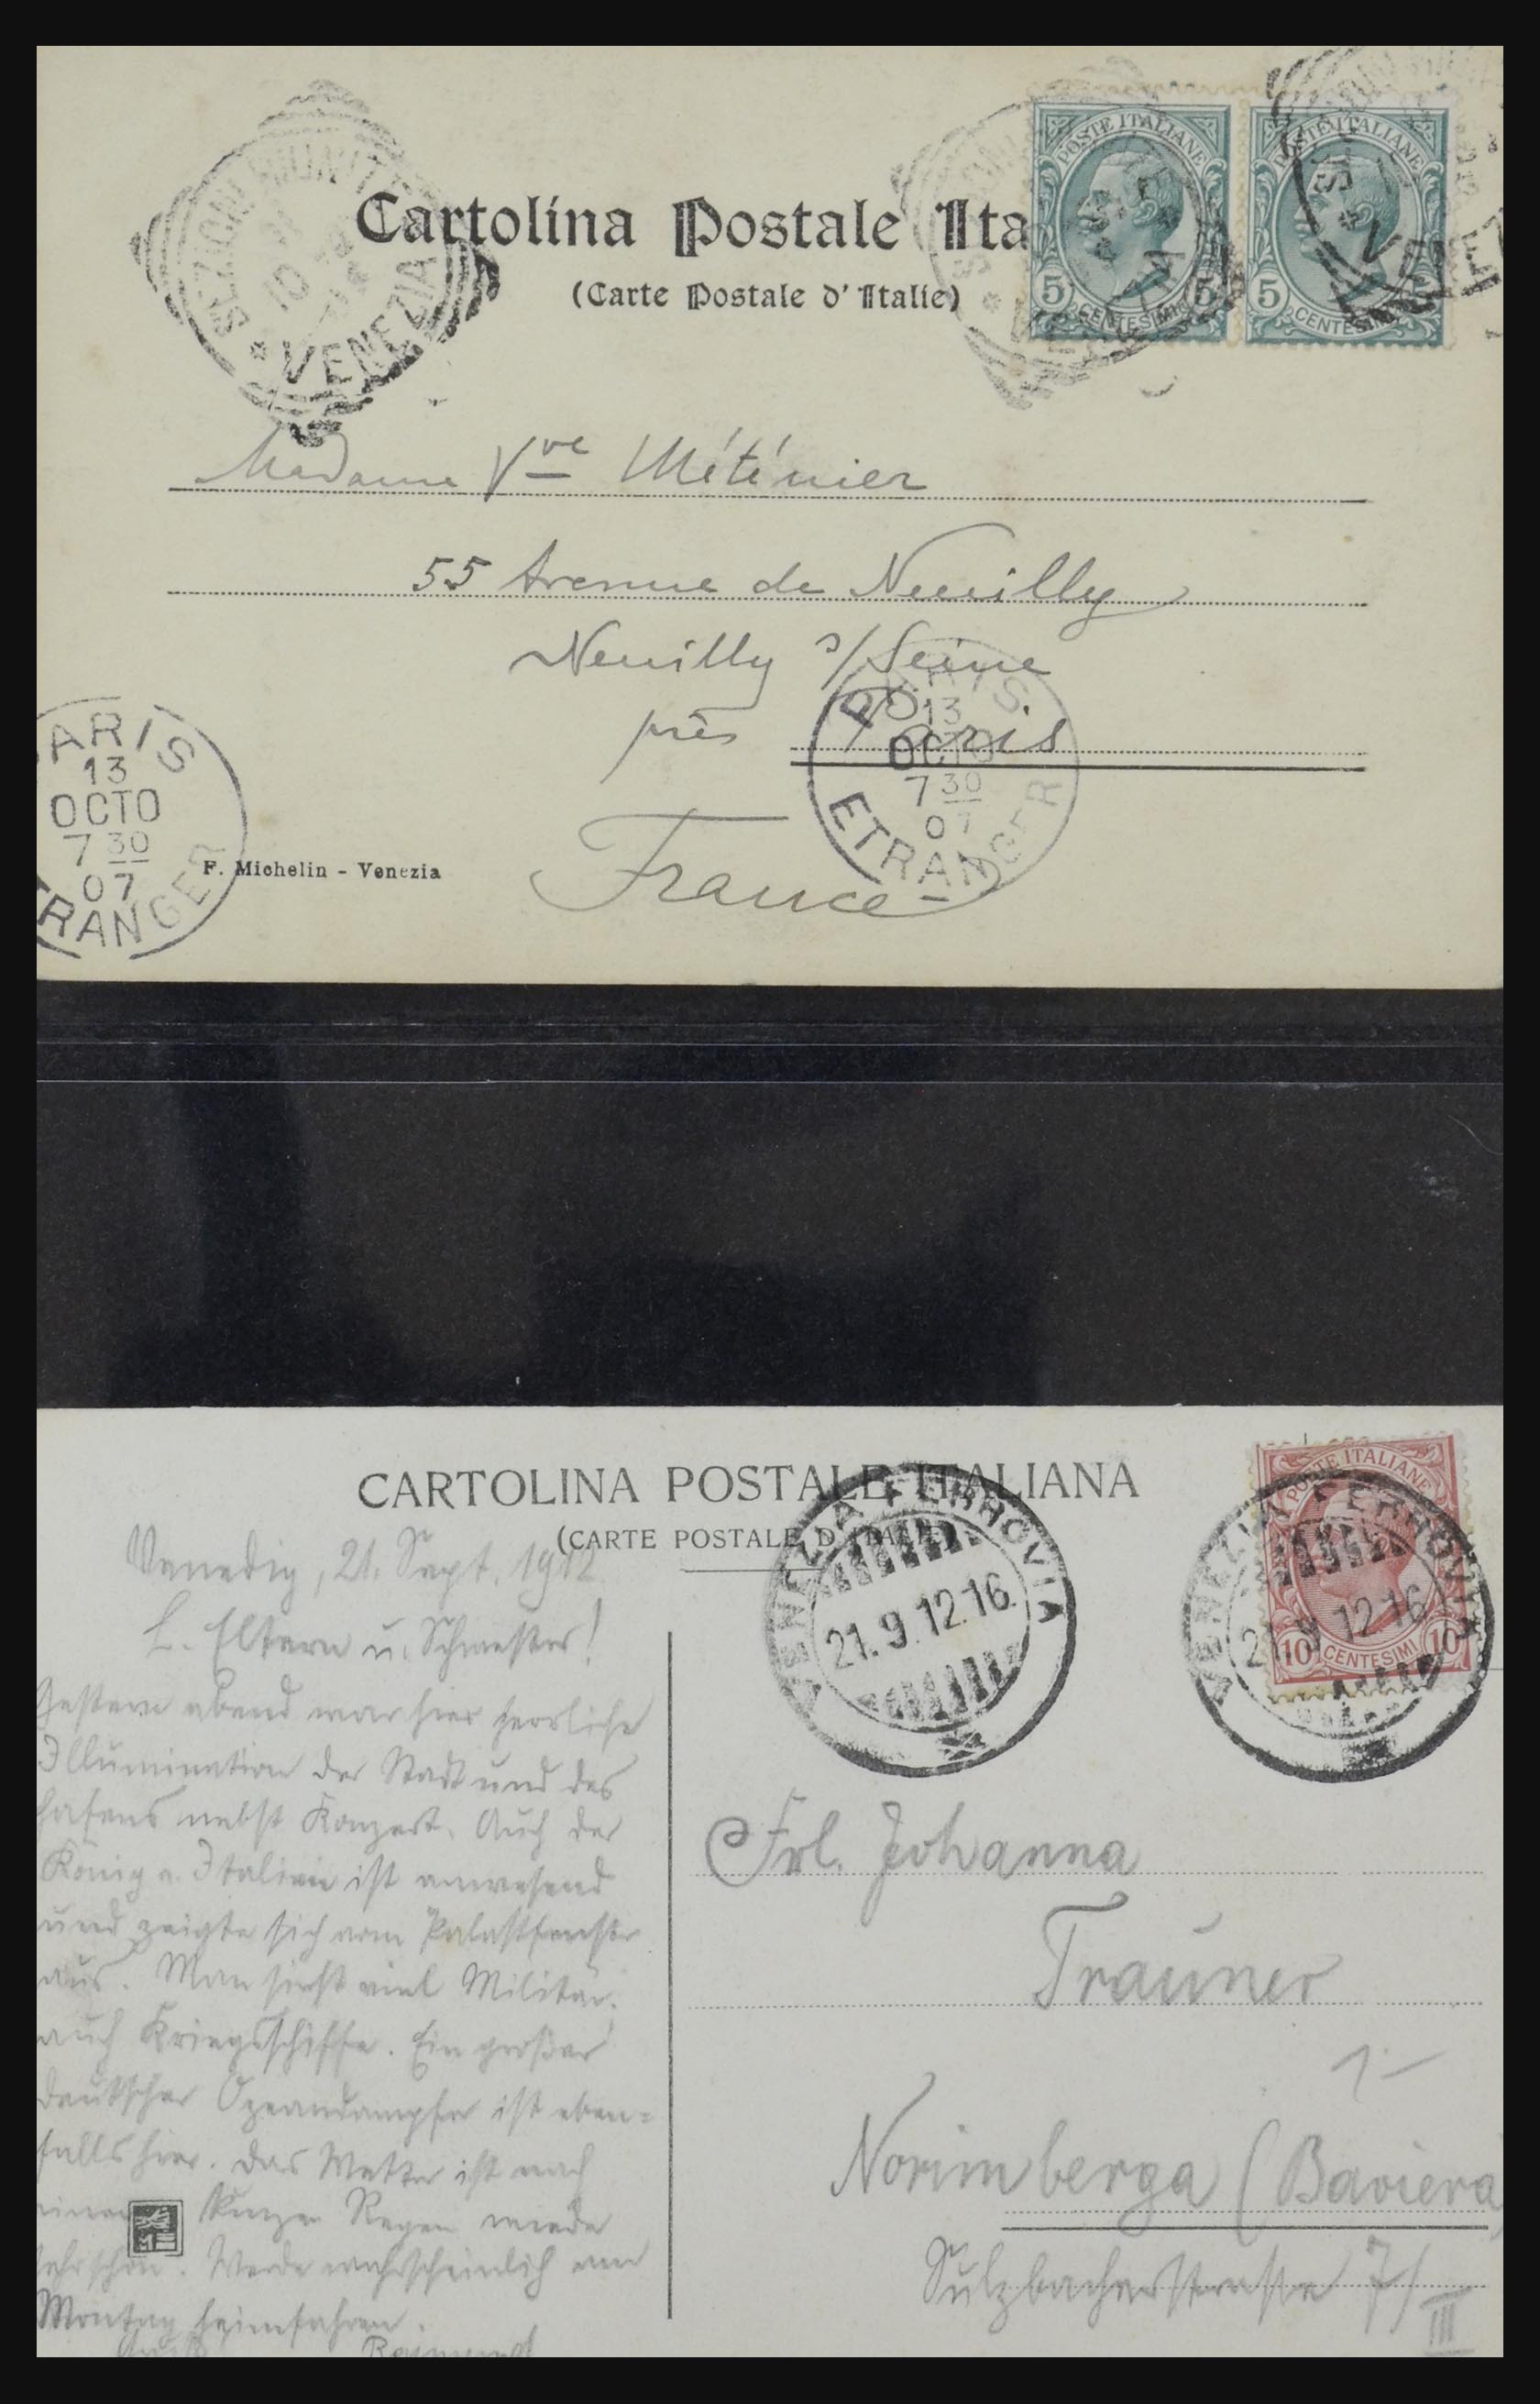 SEZIONI RIUNITE
10
* VENEZIA
Cartolina Postale Ita
(Carte Postale d'Italie)
POSTE ITALIANE
5 CENTESIMI 5
POSTE ITALIANE
5 CENTESIMI
Madame Vve Méténier
55 Avenue de Neuilly
Neuilly s/Seine
près Paris
France
PARIS
13
OCTO
7 30
07
ETRANGER
ARIS
13
OCTO
7 30
07
TRANGER
F. Michelin - Venezia
CARTOLINA POSTALE ITALIANA
(CARTE POSTALE D'ITALIE)
VENEZIA FERROVIA
21.9.12.16
POSTE ITALIANE
10 CENTESIMI 10
VENEZIA FERROVIA
21.9.12.16
Venedig, 21. Sept. 1912.
L. Eltern u. Schwester!
Gestern abend war hier herrliche
Illumination der Stadt und des
Hafens nebst Konzert. Auch der
König v. Italien ist anwesend
und zeigte sich vom Palastfenster
aus. Man sieht viel Militär,
auch Kriegsschiffe. Ein großer
deutscher Ozeandampfer ist eben=
falls hier. Das Wetter ist nach
einem kurzen Regen wieder
sehr schön. Werde wahrscheinlich am
Montag heimfahren.
Gruß Raimund
Frl. Johanna
Trauner
1.-
Norimberga (Baviera)
Sulzbacherstrasse 7/III